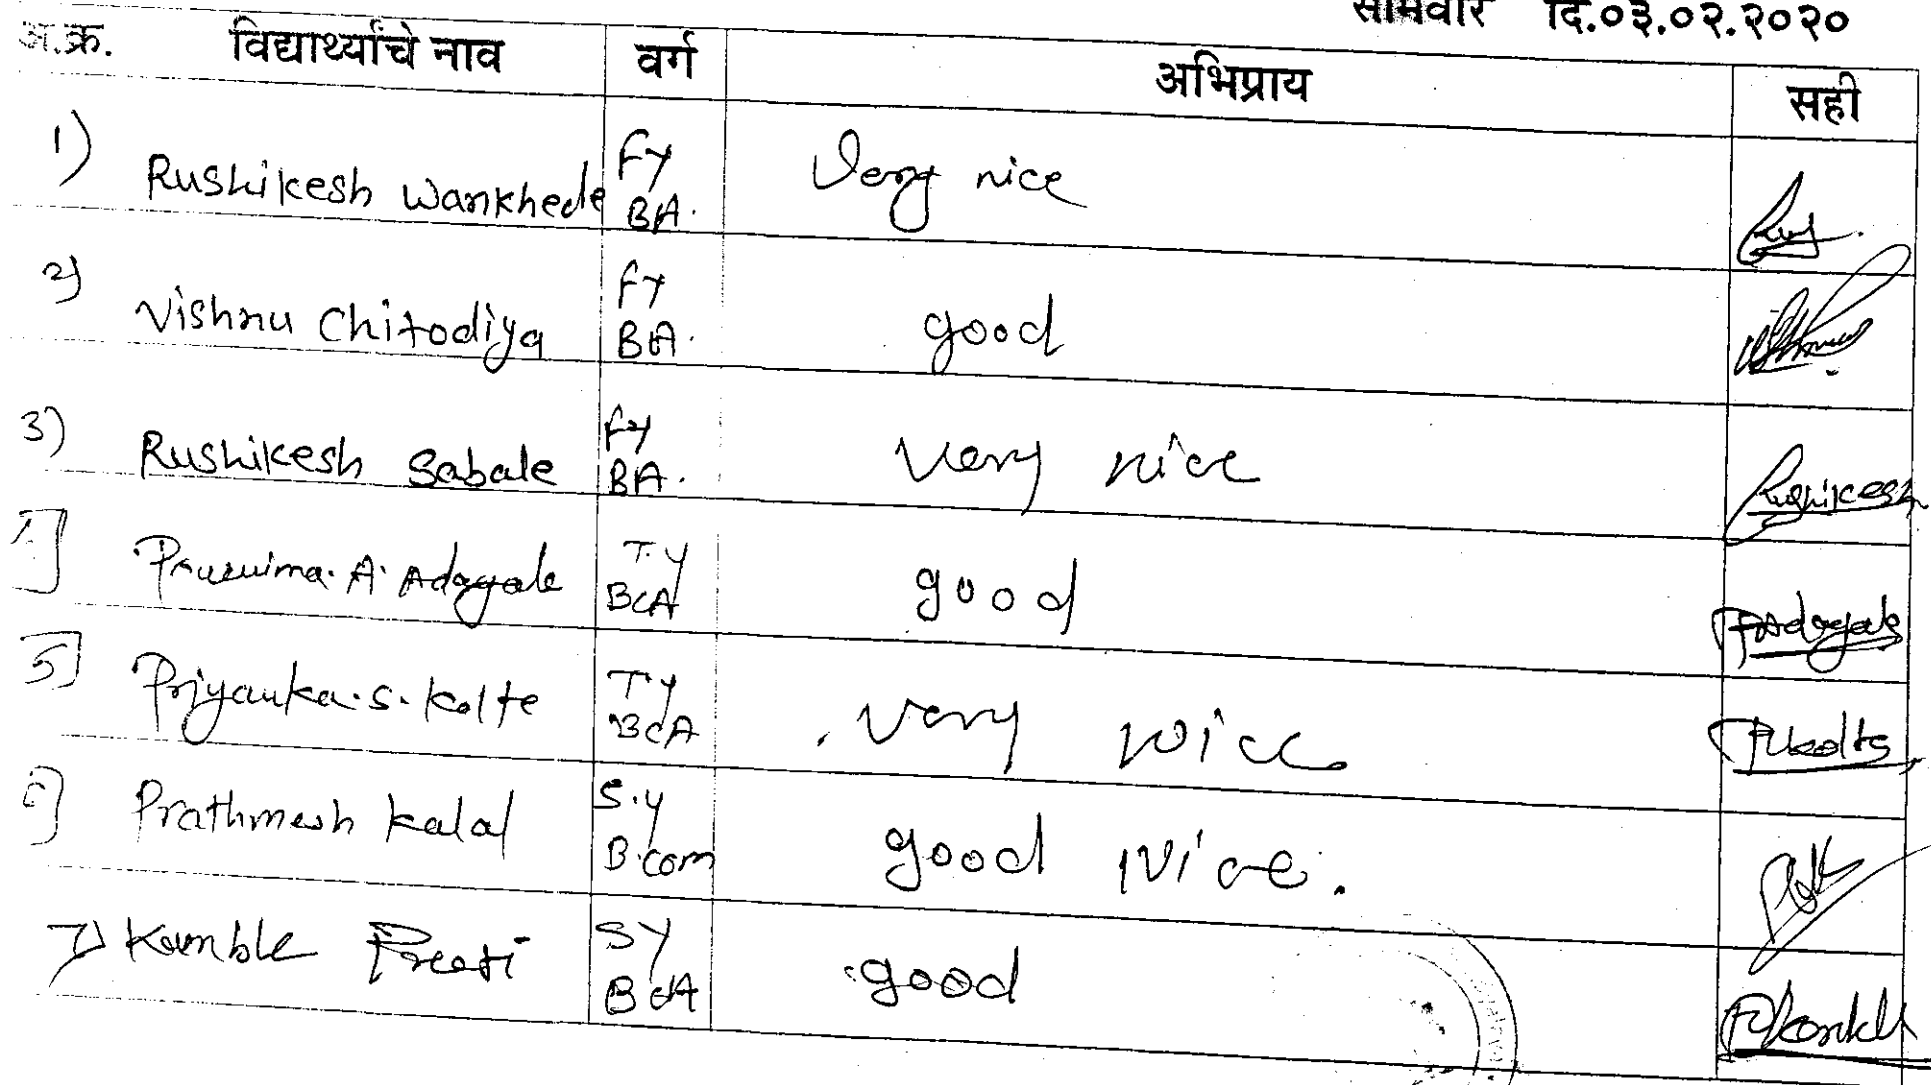 सोमवार दि.०३.०२.२०२०
अ.क्र. विद्यार्थ्यांचे नाव वर्ग अभिप्राय सही
1) Rushikesh Wankhede FY BA. Very nice
2) Vishnu Chitodiya FY BA. good
3) Rushikesh Sabale FY BA. very nice Rushikesh
4] Prunima. A. Adagale T.Y BCA good Adagale
5] Priyanka. S. Kolte T.Y BCA very nice PKolte
6] Prathmesh Kalal S.Y B.com good Nice.
7) Kamble Preeti SY BCA good